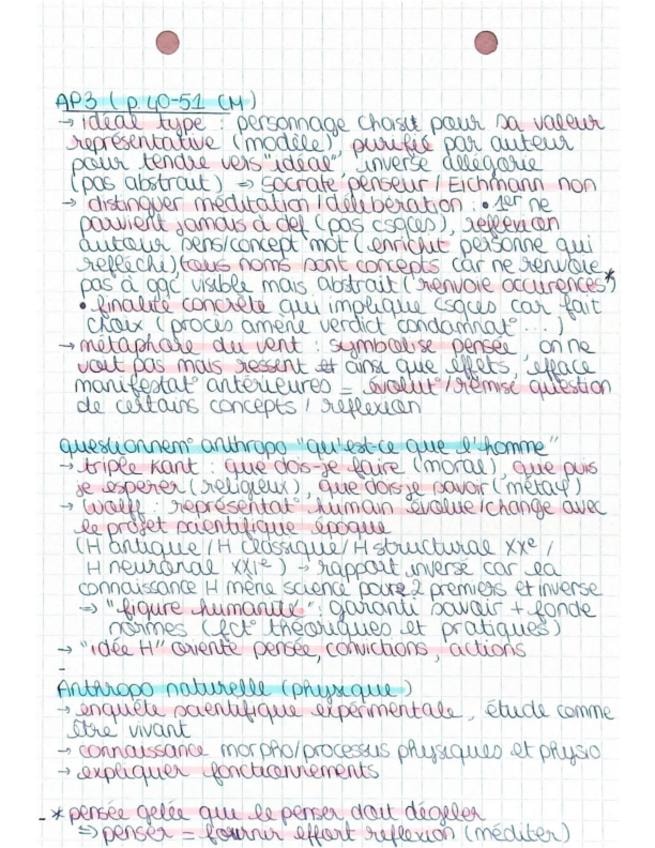 AP3 ( p 40-51 CM )
→ idéal type : personnage choisit pour sa valeur
représentative (modèle), purifiée par auteur
pour tendre vers "idéal", inverse allégorie
(pas abstrait) ⇒ Socrate penseur / Eichmann non
→ distinguer méditation/délibération : • 1er ne
parvient jamais à def (pas csqces), reflexion
autour sens/concept mot (enrichit personne qui
refléchi) tous noms sont concepts car ne renvoie
pas à qqc visible mais abstrait (renvoie occurences*)
• finalité concrète qui implique csqces car fait
choix (procès amène verdict condamnat° ...)
→ métaphore du vent : symbolise pensée, on ne
voit pas mais ressent et ainsi que effets, efface
manifestat° antérieures = évolut°/remise question
de certains concepts / reflexion
questionnem° anthropo "qu'est-ce que l'homme"
→ triple Kant : que dois-je faire (moral), que puis
je espérer (religieux), que dois-je savoir (métaφ)
→ Wolff : représentat° humain évolue/change avec
le projet scientifique époque
(H antique / H classique / H structural XXe /
H neuronal XXIe) → rapport inversé car la
connaissance H mène science pour 2 premiers et inverse
→ "figure humanité" : garanti savoir + fonde
normes (fct° théoriques et pratiques)
→ "idée H" oriente pensée, convictions, actions
Anthropo naturelle (physique)
→ enquête scientifique expérimentale, étude comme
être vivant
→ connaissance morpho/processus physiques et physio
→ expliquer fonctionnements
* pensée gelée que le penser doit dégeler
⇒ penser = fournir effort reflexion (méditer)